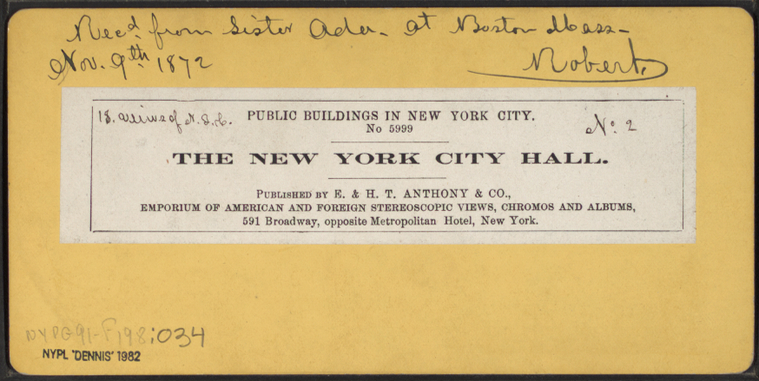 Rec'd from Sister Ada. at Boston Mass-
Nov. 9th 1872
Robert.
18. views of N.Y.C. PUBLIC BUILDINGS IN NEW YORK CITY. No. 2
No 5999
THE NEW YORK CITY HALL.
PUBLISHED BY E. & H. T. ANTHONY & CO.,
EMPORIUM OF AMERICAN AND FOREIGN STEREOSCOPIC VIEWS, CHROMOS AND ALBUMS,
591 Broadway, opposite Metropolitan Hotel, New York.
NYPG91-F198:034
NYPL "DENNIS" 1982